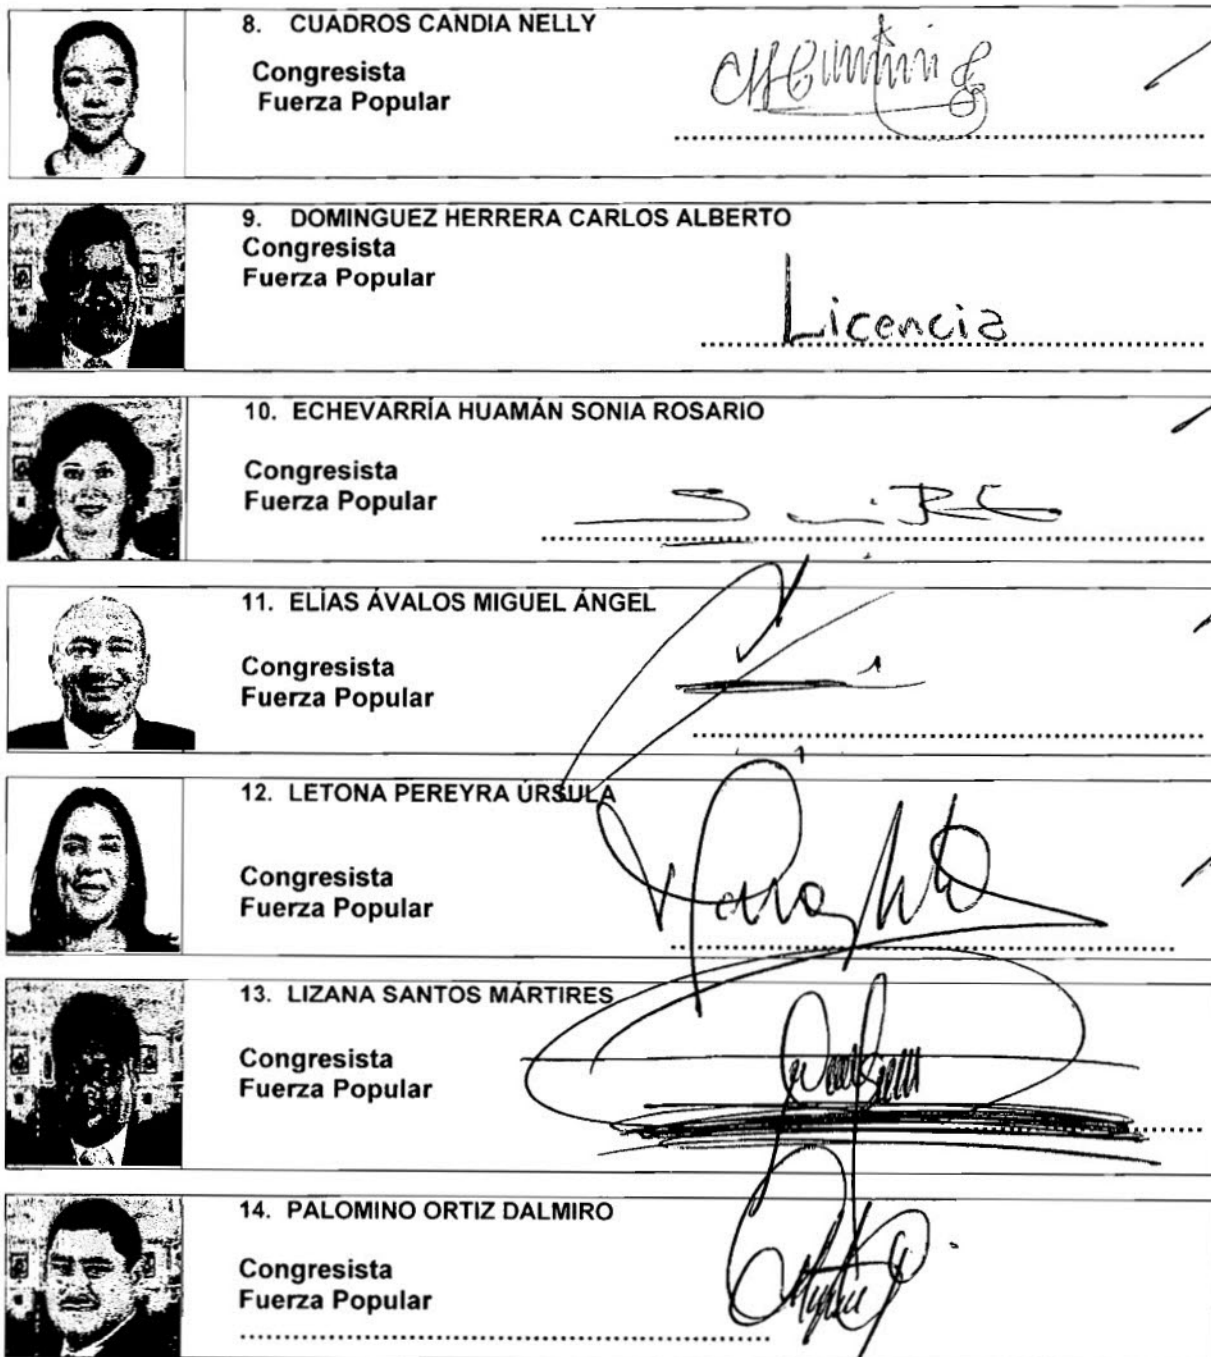 8. CUADROS CANDIA NELLY
Congresista
Fuerza Popular
9. DOMINGUEZ HERRERA CARLOS ALBERTO
Congresista
Fuerza Popular
Licencia
10. ECHEVARRÍA HUAMÁN SONIA ROSARIO
Congresista
Fuerza Popular
11. ELÍAS ÁVALOS MIGUEL ÁNGEL
Congresista
Fuerza Popular
12. LETONA PEREYRA ÚRSULA
Congresista
Fuerza Popular
13. LIZANA SANTOS MÁRTIRES
Congresista
Fuerza Popular
14. PALOMINO ORTIZ DALMIRO
Congresista
Fuerza Popular